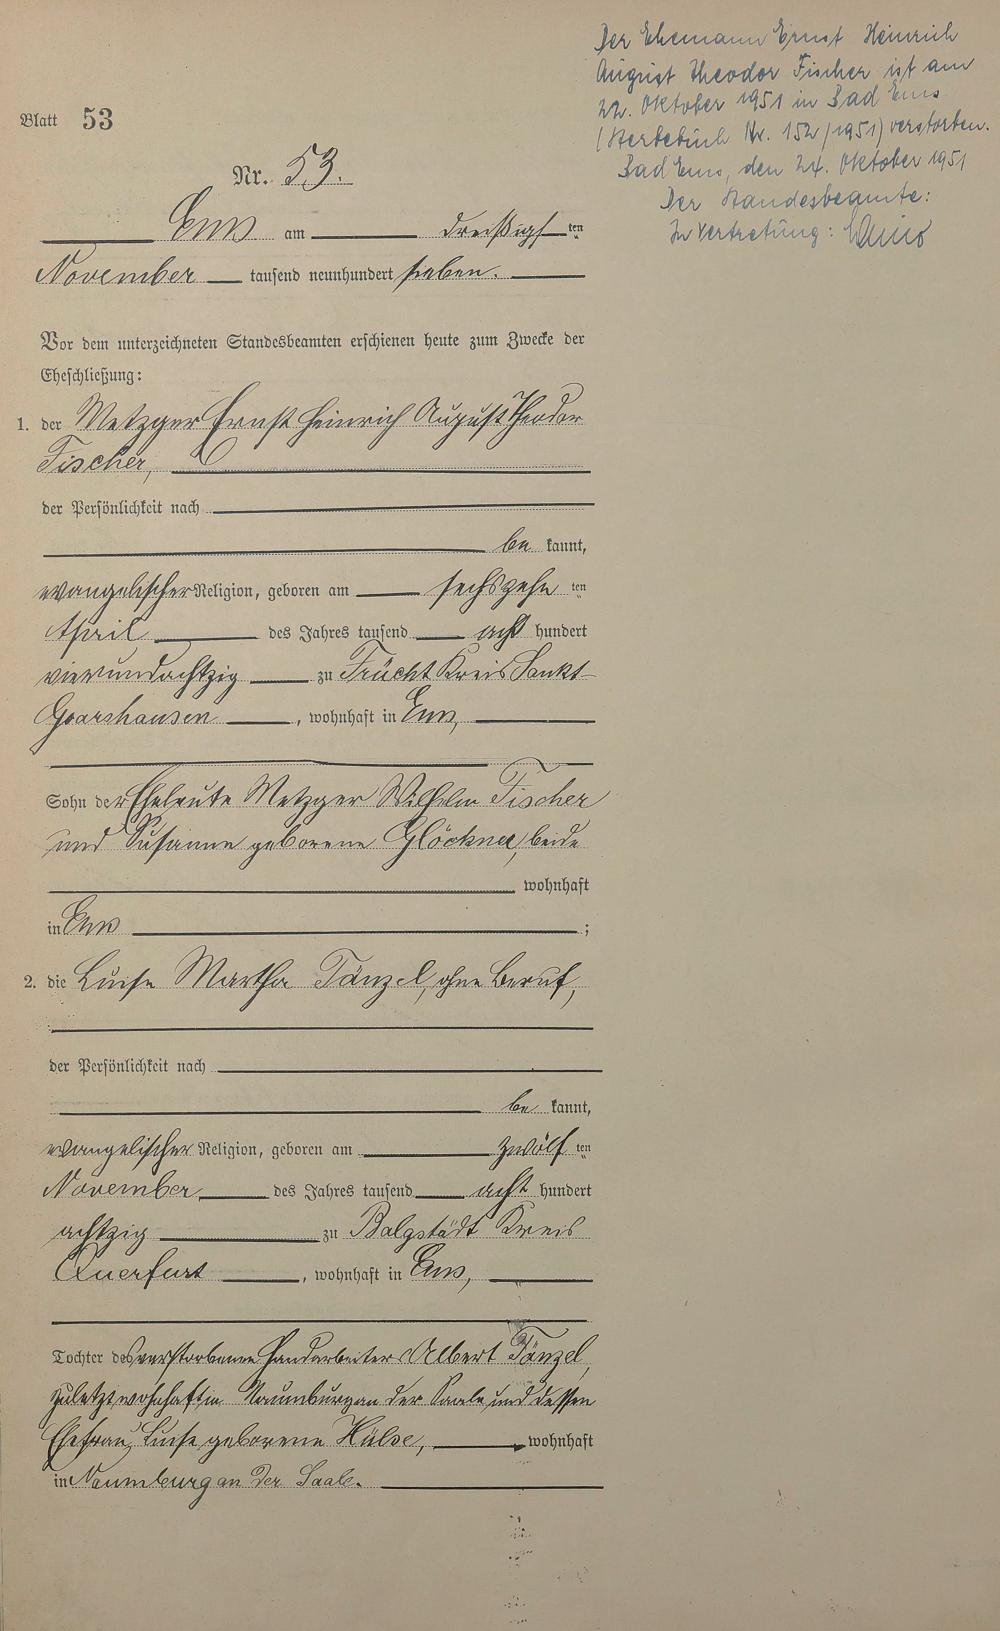 Der Ehemann Ernst Heinrich
August Theodor Fischer ist am
22. Oktober 1951 in Bad Ems
(Sterbebuch Nr. 152/1951) verstorben.
Bad Ems, den 24. Oktober 1951
Der Standesbeamte:
In Vertretung:
Blatt 53
Nr. 53.
Ems am dreißigsten
November tausend neunhundert sieben.
Vor dem unterzeichneten Standesbeamten erschienen heute zum Zwecke der
Eheschließung:
1. der Metzger Ernst Heinrich August Theodor
Fischer,
der Persönlichkeit nach
be kannt,
evangelischer Religion, geboren am sechszehn ten
April des Jahres tausend acht hundert
vierundachtzig zu Frücht Kreis Sankt-
Goarshausen, wohnhaft in Ems,
Sohn der Eheleute Metzger Wilhelm Fischer
und Susanne geborene Glöckner, beide
wohnhaft
in Ems ;
2. die Luise Martha Tänzel, ohne Beruf,
der Persönlichkeit nach
be kannt,
evangelischer Religion, geboren am zwölf ten
November des Jahres tausend acht hundert
achtzig zu Balgstädt Kreis
Querfurt, wohnhaft in Ems,
Tochter des verstorbenen Handarbeiters Albert Tänzel,
zuletzt wohnhaft in Naumburg an der Saale, und dessen
Ehefrau, Luise geborene Hülse, wohnhaft
in Naumburg an der Saale.